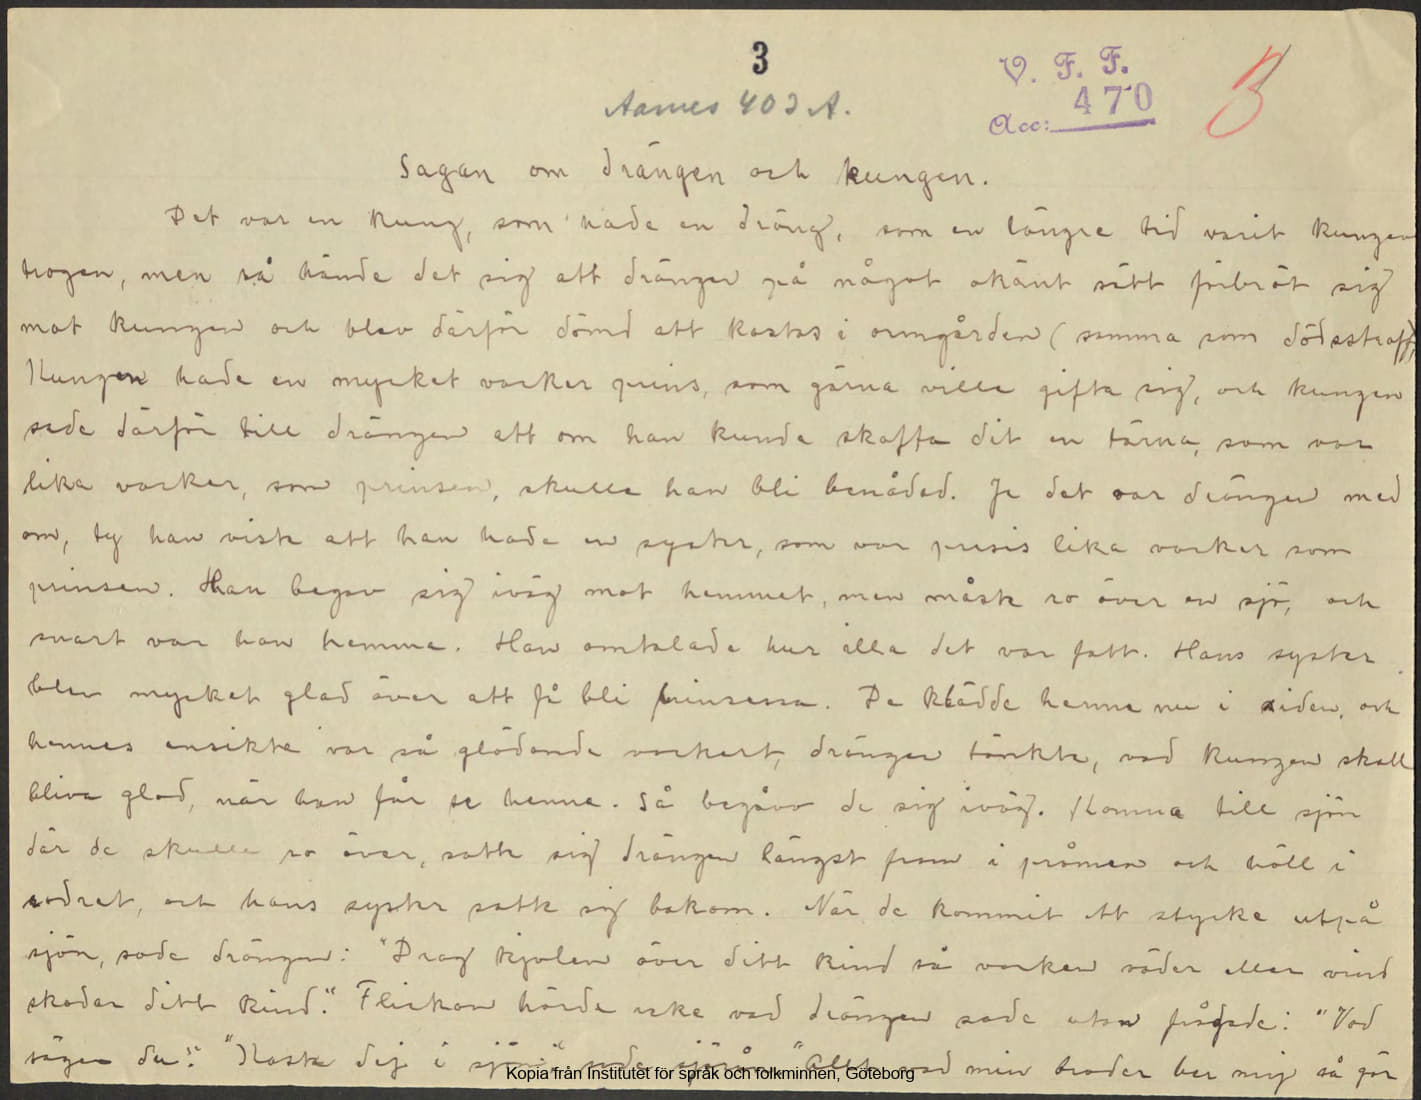 3
V. F. F.
Aarnes 403 A.
Acc: 470
3
Sagan om drängen och kungen.
Det var en kung, som hade en dräng, som en längre tid varit kungen
trogen, men så hände det sig att drängen på något okänt sätt förbröt sig
mot kungen och blev därför dömd att kastas i ormgården (samma som dödsstraff)
Kungen hade en mycket vacker prins, som gärna ville gifta sig, och kungen
sade därför till drängen att om han kunde skaffa dit en tärna, som var
lika vacker, som prinsen, skulle han bli benådad. Ja det var drängen med
om, ty han visste att han hade en syster, som var presis lika vacker som
prinsen. Han begav sig iväg mot hemmet, men måste ro över en sjö, och
snart var han hemma. Han omtalade hur illa det var fatt. Hans syster
blev mycket glad över att få bli prinsessa. De klädde henne nu i siden, och
hennes ansikte var så glödande vackert, drängen tänkte, vad kungen skall
bliva glad, när han får se henne. Så begåvo de sig iväg. Komna till sjön
där de skulle ro över, satte sig drängen längst fram i pråmen och höll i
rodret, och hans syster satte sig bakom. När de kommit ett stycke utpå
sjön, sade drängen: "Drag kjolen över ditt kind så varken väder eller vind
skadar ditt kind." Flickan hörde icke vad drängen sade utan frågade: "Vad
säger du?" "Kasta dej i sjön" sade "Allt vad min broder ber mig så gör
Kopia från Institutet för språk och folkminnen, Göteborg